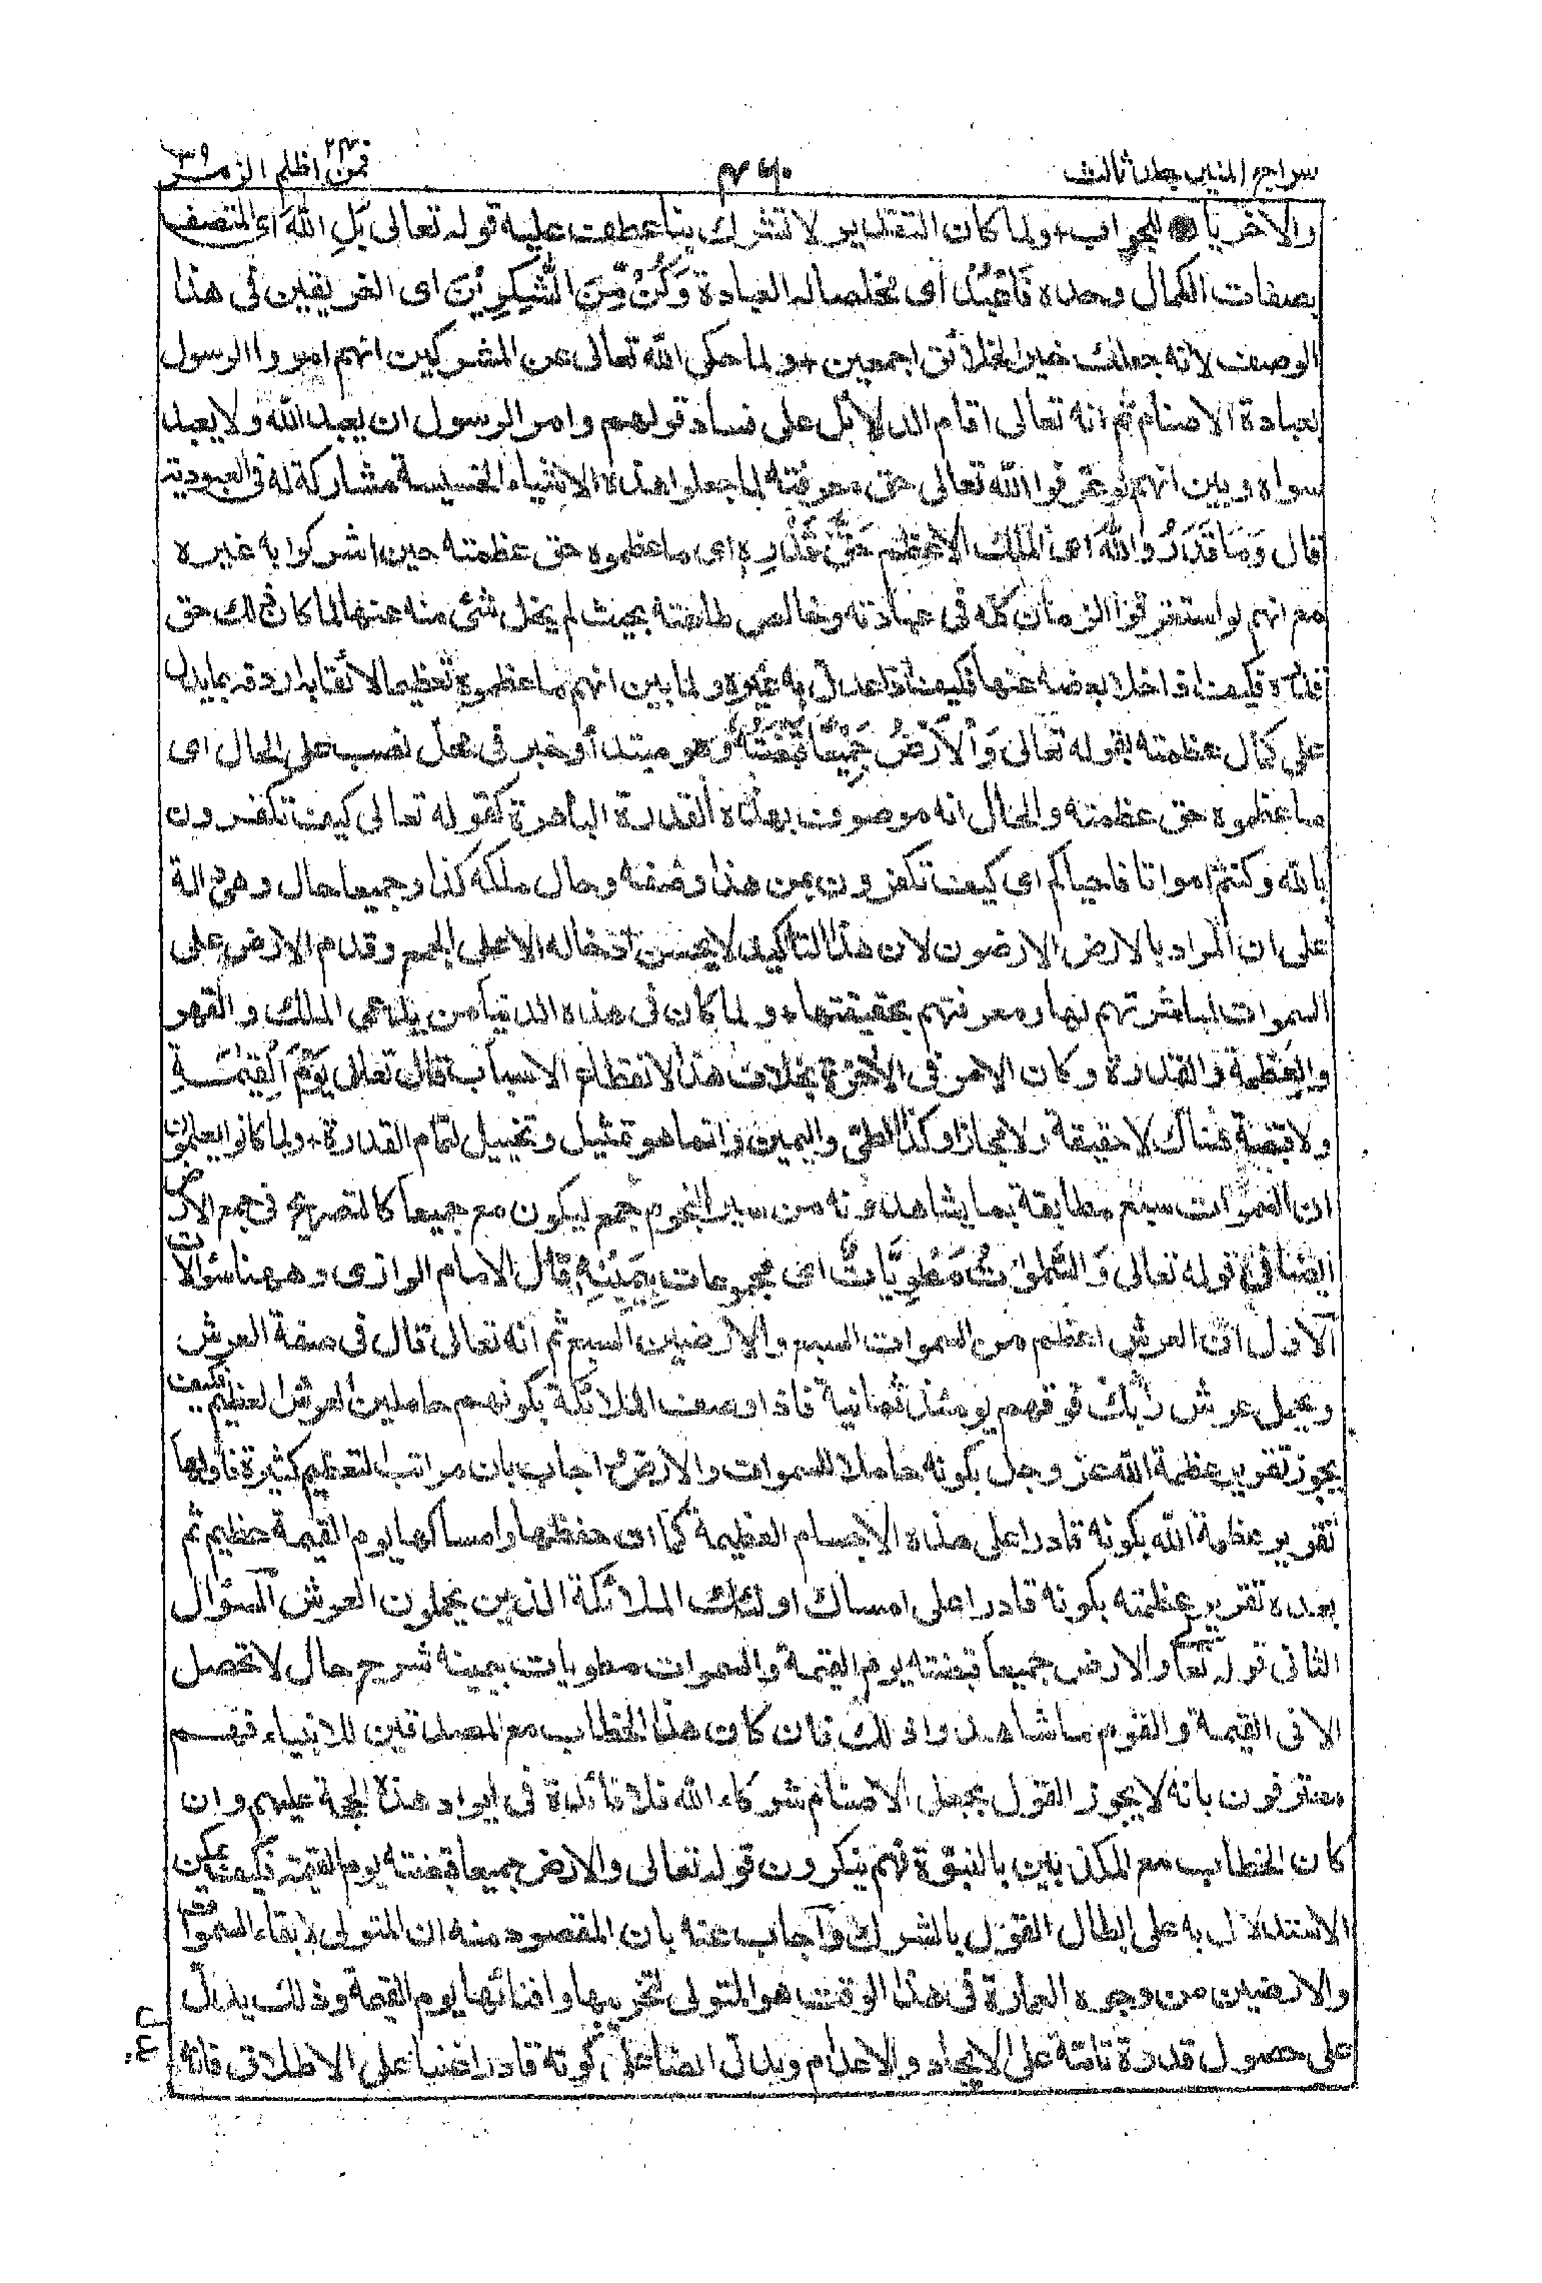 سراج المنير جلد ثالث
۴۶۰
فمن اظلم ۲۴ الزمر ۳۹
والاخر يا للجواب ولما كان التقدير لا تشرك بنا عطف عليه قوله تعالى بَلِ اللهَ اى المتصف
بصفات الكمال وحده فَاعْبُدْ اى مخلصا له العبادة وَكُنْ مِّنَ الشّٰكِرِيْنَ اى الغريقين فى هذا
الوصف لانه جعلك خير الخلائق اجمعين ولما حكى الله تعالى عن المشركين انهم امروا الرسول
بعبادة الاصنام ثم انه تعالى اقام الدلائل على فساد قولهم وامر الرسول ان يعبد الله ولا يعبد
سواه وبين انهم لو عرفوا الله تعالى حق معرفته لما جعلوا هذه الاشياء الخسيسة مشاركة له فى العبودية
قال وَمَا قَدَرُوا اللهَ اى الملك الاعظم حَقَّ قَدْرِهٖ اى ما عظموه حق عظمته حين اشركوا به غيره
مع انهم لو استغرقوا الزمان كله فى عبادته وخالص طاعته بحيث لم يخل شئ منه عنها لما كان ذلك حق
قدره فكيف اذا خلا بعضه عنها فكيف اذا عدل به غيره ولما بين انهم ما عظموه تعظيما لائقا به اردفه بما يدل
على كمال عظمته بقوله تعالى وَالْاَرْضُ جَمِيْعًا قَبْضَتُهٗ وهو مبتدأ وخبر فى محل نصب على الحال اى
ما عظموه حق عظمته والحال انه موصوف بهذه القدرة الباهرة كقوله تعالى كيف تكفرون
بالله وكنتم امواتا فاحياكم اى كيف تكفرون بمن هذا وصفه وحال ملكه كذا وجميعا حال وهى دالة
على ان المراد بالارض الارضون لان هذا التاكيد لا يحسن ادخاله الا على الجمع وقدم الارض على
السموات لمباشرتهم لها ومعرفتهم بحقيقتها ولما كان فى هذه الدنيا من يدعى الملك والقهر
والعظمة والقدرة وكان الامر فى الاخرة بخلاف هذا لانقطاع الاسباب قال تعالى يَوْمَ الْقِيٰمَةِ
ولا قبضة هناك لا حقيقة ولا مجازا وكذا الطى واليمين وانما هو تمثيل وتخييل لتمام القدرة ولما كانوا يعلمون
ان السموات سبع مطابقة بما يشاهدونه من سير النجوم جمع ليكون مع جميعا كالتصريح فى جمع الارض
ايضا فى قوله تعالى وَالسَّمٰوٰتُ مَطْوِيّٰتٌ اى مجموعات بِيَمِيْنِهٖ قال الامام الرازى وههنا سؤالات
الاول ان العرش اعظم من السموات السبع والارضين السبع ثم انه تعالى قال فى صفة العرش
ويحمل عرش ربك فوقهم يومئذ ثمانية فاذا وصف الملائكة بكونهم حاملين العرش العظيم فكيف
يجوز تقرير عظمة الله عز وجل بكونه حاملا للسموات والارض اجاب بان مراتب التعظيم كثيرة فاولها
تقرير عظمة الله بكونه قادرا على هذه الاجسام العظيمة كما ان حفظها وامساكها يوم القيمة عظيم ثم
بعده تقرير عظمته بكونه قادرا على امساك اولئك الملائكة الذين يحملون العرش السؤال
الثانى قوله تعا والارض جميعا قبضته يوم القيمة والسموات مطويات بيمينه شرح حال لا تحصل
الا فى القيمة والقوم ما شاهدوا ذلك فان كان هذا الخطاب مع المصدقين للانبياء فهم
معترفون بانه لا يجوز القول بجعل الاصنام شركاء الله فلا فائدة فى ايراد هذه الحجة عليهم وان
كان الخطاب مع المكذبين بالنبوة فهم ينكرون قوله تعالى والارض جميعا قبضته يوم القيمة فكيف يمكن
الاستدلال به على ابطال القول بالشرك واجاب عنه بان المقصود منه ان المتولى لابقاء السموات
والارضين من وجوه العمارة فى هذا الوقت هو المتولى لتخريبها وافنائها يوم القيمة وذلك يدل
على حصول قدرة تامة على الايجاد والاعدام ويدل ايضا على كونه قادرا غنيا على الاطلاق فانه